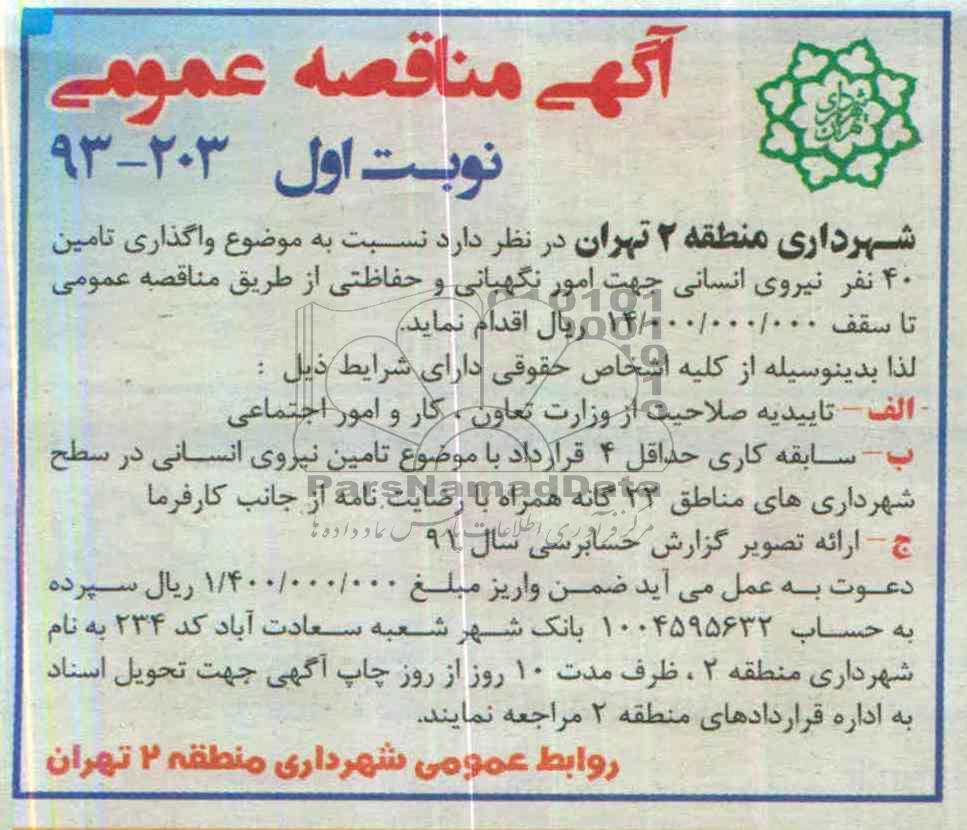 آگهی مناقصه عمومی
نوبت اول ۲۰۳-۹۳
شهرداری تهران
شهرداری منطقه ۲ تهران در نظر دارد نسبت به موضوع واگذاری تامین
۴۰ نفر نیروی انسانی جهت امور نگهبانی و حفاظتی از طریق مناقصه عمومی
تا سقف ۱۴/۰۰۰/۰۰۰/۰۰۰ ریال اقدام نماید.
لذا بدینوسیله از کلیه اشخاص حقوقی دارای شرایط ذیل :
الف - تاییدیه صلاحیت از وزارت تعاون ، کار و امور اجتماعی
ب - سابقه کاری حداقل ۴ قرارداد با موضوع تامین نیروی انسانی در سطح
شهرداری های مناطق ۲۲ گانه همراه با رضایت نامه از جانب کارفرما
ج - ارائه تصویر گزارش حسابرسی سال ۹۱
دعوت به عمل می آید ضمن واریز مبلغ ۱/۴۰۰/۰۰۰/۰۰۰ ریال سپرده
به حساب ۱۰۰۴۵۹۵۶۳۲ بانک شهر شعبه سعادت آباد کد ۲۳۴ به نام
شهرداری منطقه ۲ ، ظرف مدت ۱۰ روز از روز چاپ آگهی جهت تحویل اسناد
به اداره قراردادهای منطقه ۲ مراجعه نمایند.
روابط عمومی شهرداری منطقه ۲ تهران
ParsNamadData